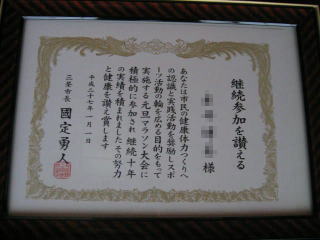 継続参加を讃える
様
あなたは市民の健康体力つくりへ
の認識と実践活動を奨励しスポ
ーツ活動の輪を広める目的をもって
実施する元旦マラソン大会に
積極的に参加され継続十年
の実績を積まれましたその努力
と健康を讃え賞します
平成二十七年一月一日
三条市長
國定勇人